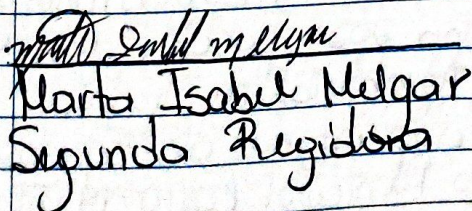 Marta Isabel Melgar
Marta Isabel Melgar
Segunda Regidora